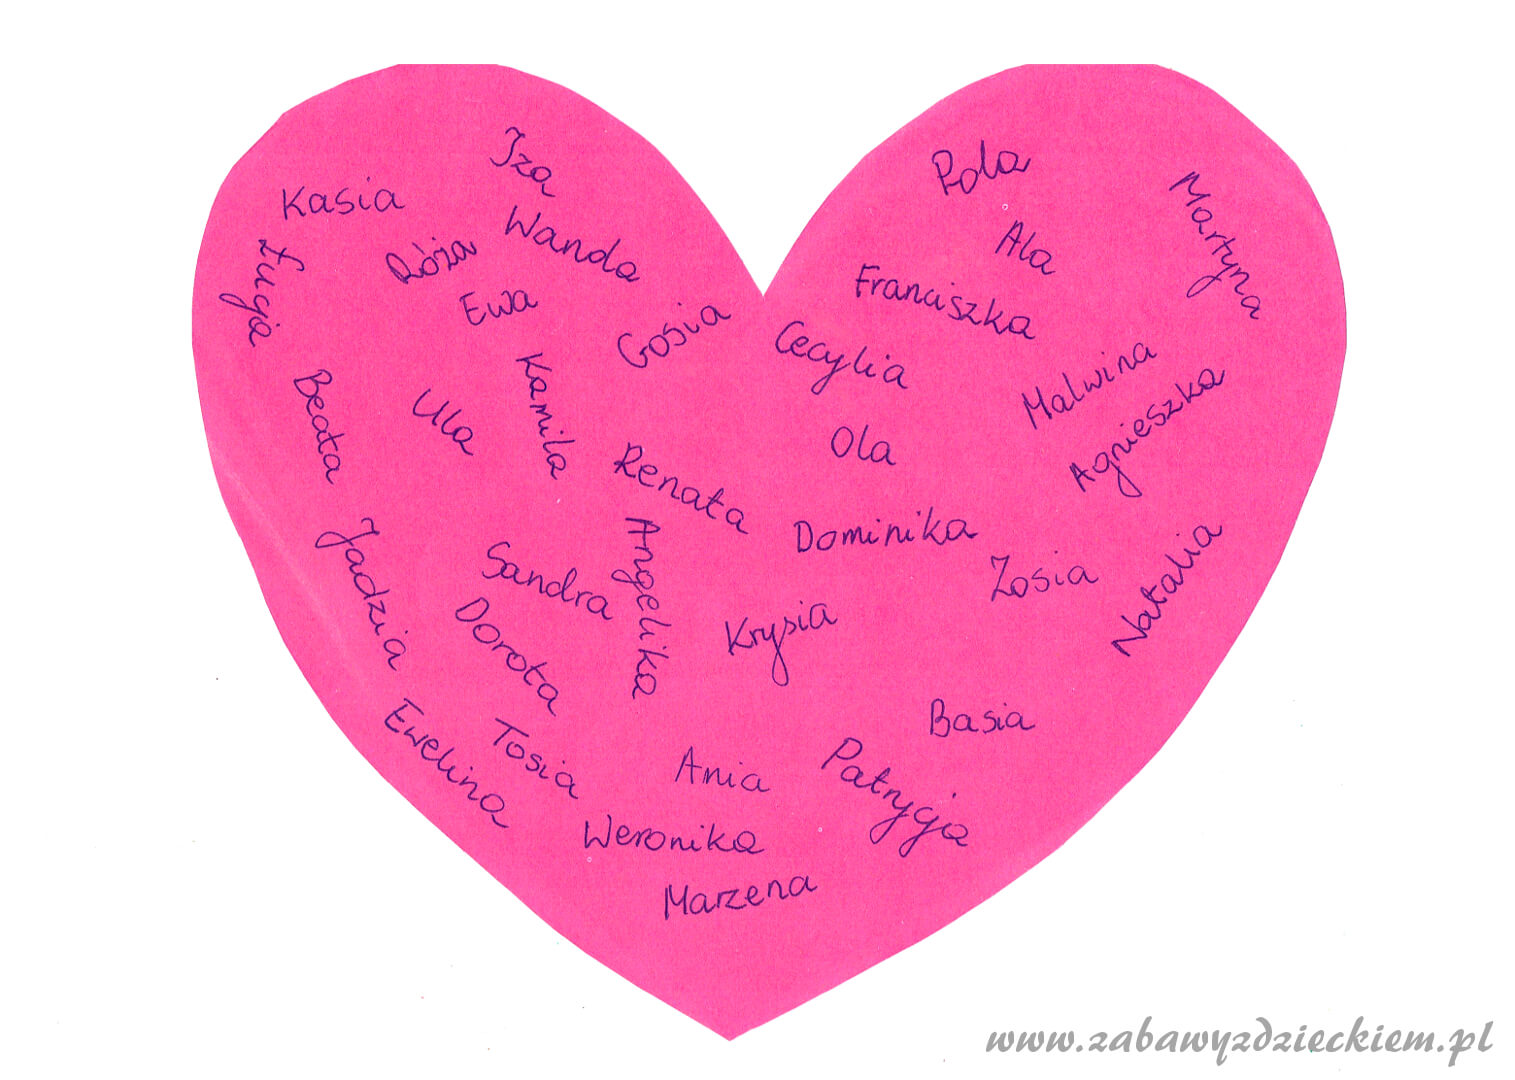 Iza
Kasia
Wanda
Róża
Łucja
Ewa
Gosia
Kamila
Beata
Ula
Renata
Angelika
Jadzia
Sandra
Dorota
Ewelina
Tosia
Ania
Weronika
Marzena
Pola
Martyna
Ala
Franciszka
Cecylia
Malwina
Agnieszka
Ola
Dominika
Zosia
Natalia
Krysia
Basia
Patrycja
www.zabawyzdzieckiem.pl